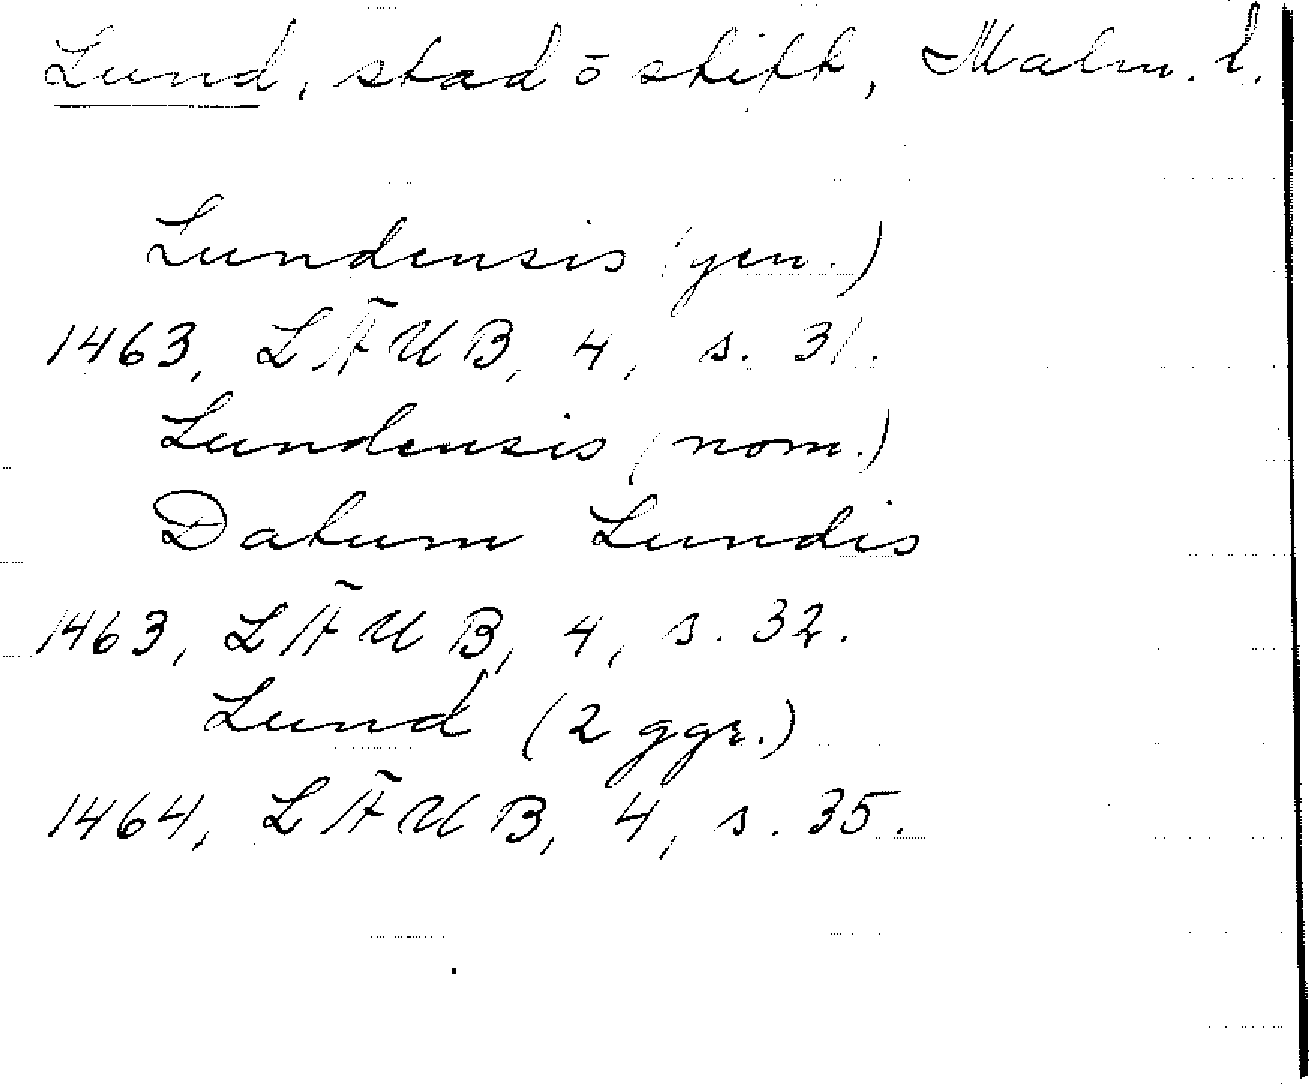 Lund, stad o stift, Malm. l.
Lundensis (gen.)
1463, LÄUB, 4, s. 31.
Lundensis (nom.)
Datum Lundis
1463, LÄUB, 4, s. 32.
Lund (2 ggr.)
1464, LÄUB, 4, s. 35.